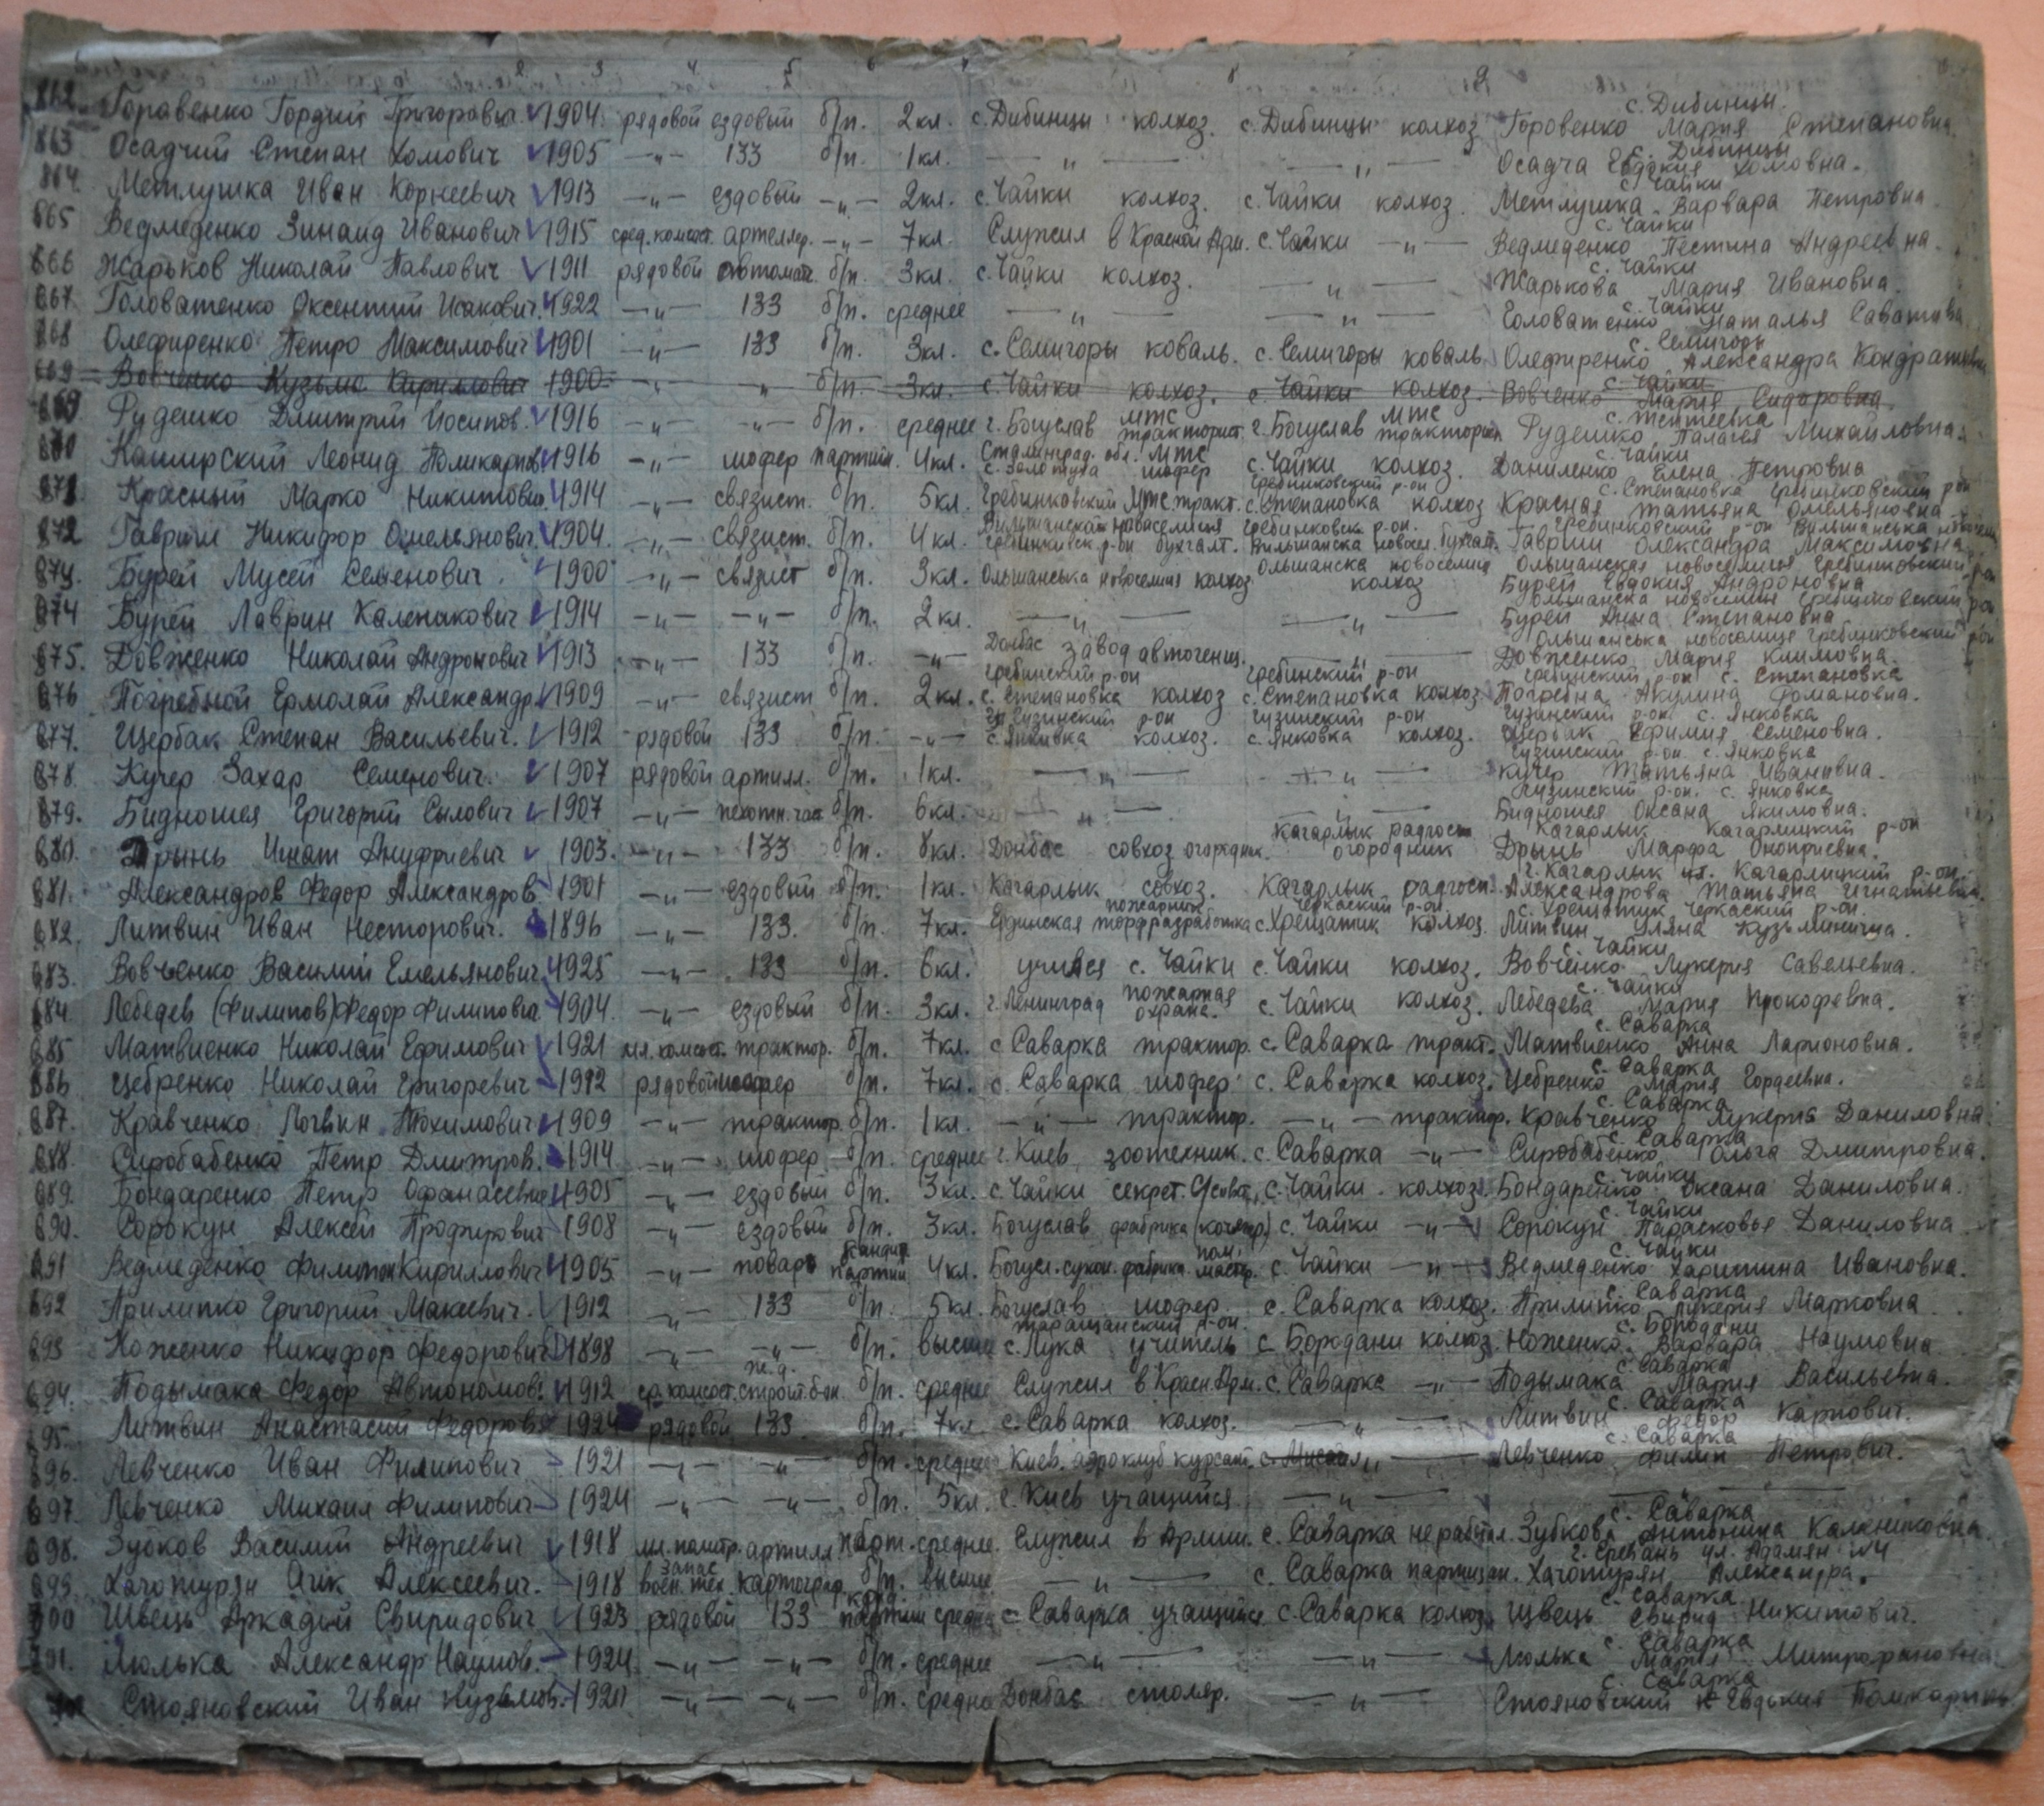 2 3 4 5 6 7 8 9
862. Горавенко Гордий Григоровичь 1904 рядовой ездовый б/п. 2кл. с. Дибинцы колхоз. с. Дибинцы колхоз с. Дибинцы. Горовенко Мария Степановна.
863 Осадчий Степан Хомович 1905 —„— 133 б/п. 1кл. —„— —„— с. Дибинцы Осадча Евдокия Хомовна.
864. Метлушка Иван Корнеевич 1913 —„— ездовый —„— 2кл. с. Чайки колхоз. с. Чайки колхоз. с. Чайки Метлушка Варвара Петровна
865 Ведмеденко Зинаид Иванович 1915 сред. комсост. артеллер. —„— 7кл. Служил в Красной Арм. с. Чайки —„— с. Чайки Ведмеденко Пестина Андреевна.
866 Жарьков Николай Павлович 1911 рядовой автомат. б/п. 3кл. с. Чайки колхоз. —„— с. Чайки Жарькова Мария Ивановна.
867. Головатенко Оксентий Исакович. 1922 —„— 133 б/п. среднее —„— —„— с. Чайки Головатенко Наталья
868 Олефиренко Петро Максимович 1901 —„— 133 б/п. 3кл. с. Семигоры коваль. с. Семигоры коваль. с. Семигоры Олефиренко Александра
869 Вовченко Кузьма Кириллович 1900 —„— „ б/п. 3кл. с. Чайки колхоз. с. Чайки колхоз. с. Чайки Вовченко Мария Сидоровна
869. Рудешко Дмитрий Иосипов. 1916 —„— —„— б/п. среднее г. Богуслав МТС тракторист г. Богуслав МТС тракторист Рудешко Палагея Михайловна.
870 Каширский Леонид Поликарпов 1916 —„— шофер партийн. 4кл. Сталинград. обл. МТС с. Золотуха шофер с. Чайки колхоз. с. Чайки Даниленко Елена Петровна
871. Красный Марко Никитович 1914 —„— связист. б/п. 5кл. Гребинковский МТС тракт. Гребинковский р-он с. Степановка колхоз с. Степановка Гребинковский р-он Красная Татьяна Омельяновна
872 Гавриш Никифор Омельянович. 1904. —„— связист. б/п. 4кл. Вильшанская новоселиця Гребинковск. р-он бухгалт. Гребинковск. р-он. Вильшанска новосел. бухгалт. Гребинковский р-он Вильшанська Гавриш Олександра Максимовна
873. Бурей Мусей Семенович. 1900 —„— связист б/п. 3кл. Ольшанська новоселиця колхоз. Ольшанска новоселиця колхоз Ольшанская новоселиця Гребинковский р-он Бурей Евдокия Андроновна
874 Бурей Лаврин Каленакович 1914 —„— —„— б/п. 2кл. —„— —„— Ольшанска новоселиця Гребинковский р-он Бурей Анна Степановна
875. Довженко Николай Андронович 1913 —„— 133 б/п. —„— Донбас завод автогенщ. —„— Ольшанська новоселиця Гребинковский р-он Довженко Мария Климовна.
876 Погребной Ермолай Александр. 1909 —„— связист б/п. 2кл. Гребинский р-он с. Степановка колхоз Гребинский р-он с. Степановка колхоз. Гребинский р-он с. Степановка Погребна Акулина Романовна.
877. Щербак Степан Васильевич. 1912 рядовой 133 б/п. —„— Гузинский р-он с. Янкивка колхоз. Гузинский р-он с. Янковка колхоз. Гузинский р-он с. Янковка Щербак Ефимия Семеновна.
878. Кучер Захар Семенович. 1907 рядовой артилл. б/п. 1кл. —„— —„— Гузинский р-он с. Янковка Кучер Татьяна Ивановна.
879. Бидношея Григорий Сылович 1907 —„— пехотн. час б/п. 6кл. —„— —„— Гузинский р-он. с. Янковка Бидношея Оксана Якимовна.
880. Дрынь Игнат Ануфриевич 1903. —„— 133 б/п. 8кл. Донбас совхоз огородник. Кагарлык радгосп огородник Кагарлык Кагарлицкий р-он Дрынь Марфа Оноприевна.
881. Александров Федор Александров 1901 —„— ездовый б/п. 1кл. Кагарлык совхоз. Кагарлык радгосп. г. Кагарлык Кагарлицкий р-он. Александрова Татьяна Игнатьевна.
882. Литвин Иван Несторович. 1896 —„— 133. б/п. 7кл. пожарник торфразработка Черкаский р-он с. Хрещатик колхоз. с. Хрещатик Черкаский р-он. Литвин Уляна Кузьминична.
883. Вовченко Василий Емельянович 1925 —„— 133 б/п. 6кл. учився с. Чайки с. Чайки колхоз. с. Чайки Вовченко Лукерия Савельевна.
884. Лебедев (Филипов) Федор Филипович 1904. —„— ездовый б/п. 3кл. г. Ленинград пожарная охрана. с. Чайки колхоз. с. Чайки Лебедева Мария Прокофевна.
885 Матвиенко Николай Ефимович 1921 мл. комсост. трактор. б/п. 7кл. с. Саварка трактор. с. Саварка тракт. с. Саварка Матвиенко Анна Ларионовна.
886 Цебренко Николай Григоревич 1912 рядовой шофер б/п. 7кл. с. Саварка шофер с. Саварка колхоз. с. Саварка Цебренко Мария Гордеевна.
887. Кравченко Логвин Тохимович 1909 —„— трактор. б/п. 1кл. —„— трактор. —„— трактор. с. Саварка Кравченко Лукерия Даниловна
888. Сиробабенко Петр Дмитров. 1914 —„— шофер б/п. среднее г. Киев зоотехник. с. Саварка —„— с. Саварка Сиробабенко Ольга Дмитровна.
889. Бондаренко Петр Офанасевич 1905 —„— ездовый б/п. 3кл. с. Чайки секрет. с. Чайки колхоз. с. Чайки Бондаренко Оксана Даниловна.
890. Сорокун Алексей Профирович 1908 —„— ездовый б/п. 3кл. Богуслав фабрика (кочегар) с. Чайки —„— с. Чайки Сорокун Парасковья Даниловна
891 Ведмеденко Филимон Кириллович 1905 —„— повар кандид. партии 4кл. Богусл. сукон. фабрика пом. мастер. с. Чайки —„— с. Чайки Ведмеденко Харитина Ивановна.
892 Прилипко Григорий Макеевич. 1912 —„— 133 б/п. 5кл. Богуслав шофер с. Саварка колхоз. с. Саварка Прилипко Лукерия Марковна
893 Ноженко Никифор Федорович 1898 —„— —„— б/п. высшее Таращанский р-он. с. Лука учитель с. Бородани колхоз. с. Бородани Ноженко Варвара Наумовна
894. Подымака Федор Автономов. 1912 ср. комсост. ж.д. строит. б-он. б/п. средне Служил в Красн. Арм. с. Саварка —„— с. Саварка Подымака Мария Васильевна.
895. Литвин Анастасий Федоров. 1924 рядовой 133 б/п. 7кл с. Саварка колхоз. —„— с. Саварка Литвин Федор Карпович.
896. Левченко Иван Филипович 1921 —„— —„— б/п. средне Киев. аэроклуб курсант. —„— с. Саварка Левченко Филип Петрович.
897. Левченко Михаил Филипович 1924 —„— —„— б/п. 5кл. г. Киев учащийся —„— —„—
898. Зубков Василий Андреевич 1918 артилл парт. среднее. Служил в Армии. с. Саварка не работал. с. Саварка Зубкова Антонина
899. Хачотурян Алексеевич. 1918 запас воен. тех. картограф. б/п. высшее —„— с. Саварка партизан. г. Ереван ул. Адамян №4 Хачотурян Александра.
900 Швець Аркадий Свиридович 1923 рядовой 133 канд. партии средне с. Саварка учащийся с. Саварка колхоз. с. Саварка Швець Свирид Никитович.
901. Люлька Александр Наумов. 1924 —„— —„— б/п. средне —„— —„— с. Саварка Люлька Мария Митрофановна
Стояновский Иван Кузьмов. —„— —„— б/п. средне Донбас столяр. —„— с. Саварка Стояновский Евдокия